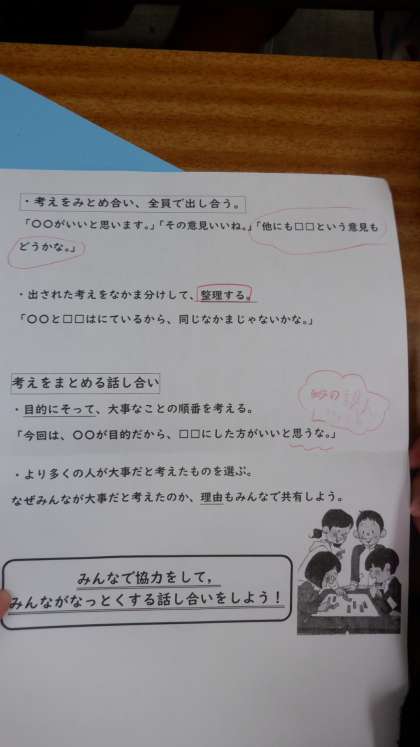 ・考えをみとめ合い、全員で出し合う。
「〇〇がいいと思います。」「その意見いいね。」「他にも□□という意見も
どうかな。」
・出された考えをなかま分けして、整理する。
「〇〇と□□はにているから、同じなかまじゃないかな。」
考えをまとめる話し合い
・目的にそって、大事なことの順番を考える。
「今回は、〇〇が目的だから、□□にした方がいいと思うな。」
・より多くの人が大事だと考えたものを選ぶ。
なぜみんなが大事だと考えたのか、理由もみんなで共有しよう。
みんなで協力をして，
みんながなっとくする話し合いをしよう！